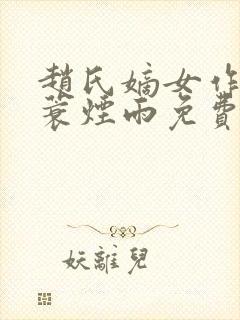 趙氏嫡女作
蓑煙雨免費
妖離兒